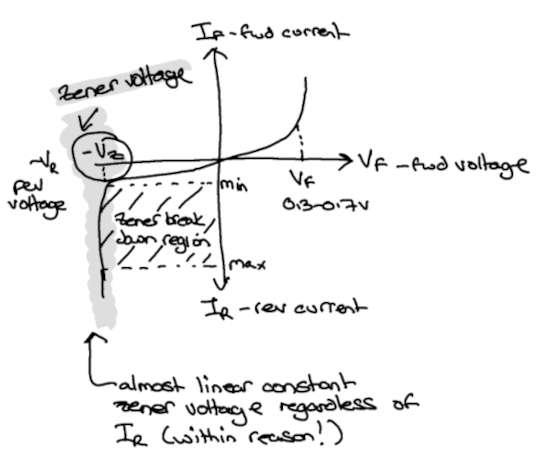 IF - fwd current
zener voltage
-Vz
-VR
rev
voltage
VF - fwd voltage
min
VF
0.3-0.7V
zener break
down region
max
IR - rev current
almost linear constant
zener voltage regardless of
IR (within reason!)